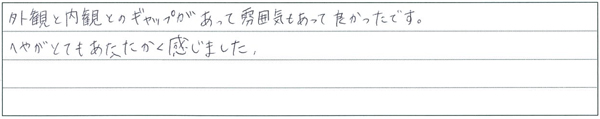 外観と内観とのギャップがあって雰囲気もあって良かったです。
へやがとてもあたたかく感じました。